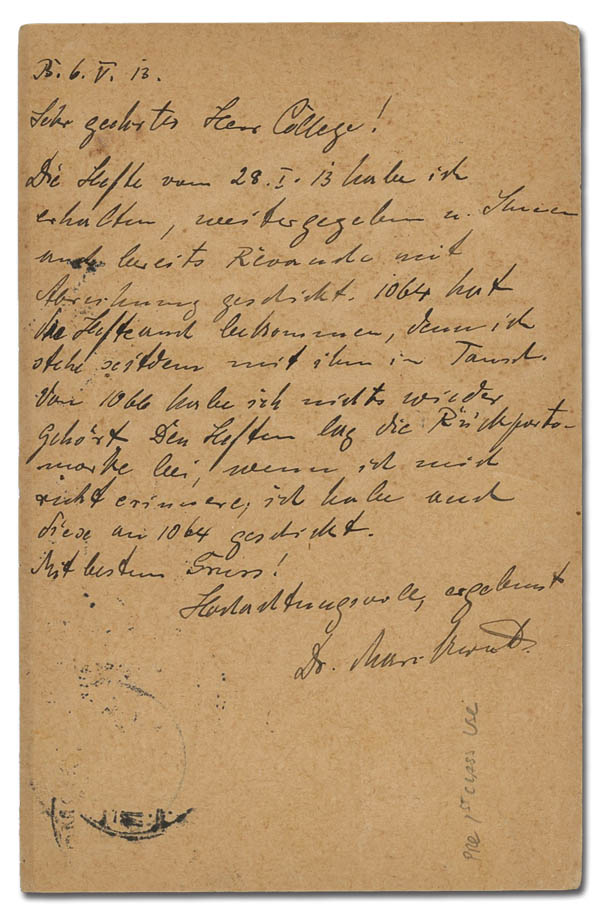 B. 6. V. 13.
Sehr geehrter Herr College!
Die Hefte vom 28. I. 13 habe ich
erhalten, weitergegeben u. Ihnen
auch bereits mit
Abrechnung geschickt. 1064 hat
die Hefte auch bekommen, denn ich
stehe seitdem mit ihm in Tausch.
Von 1066 habe ich nichts wieder
gehört. Den Heften lag die Rückporto-
marke bei, wenn ich mich
recht erinnere, ich habe auch
diese an 1064 geschickt.
Mit bestem Gruss!
Hochachtungsvoll, ergebenst
Dr.
Pre 1st class use